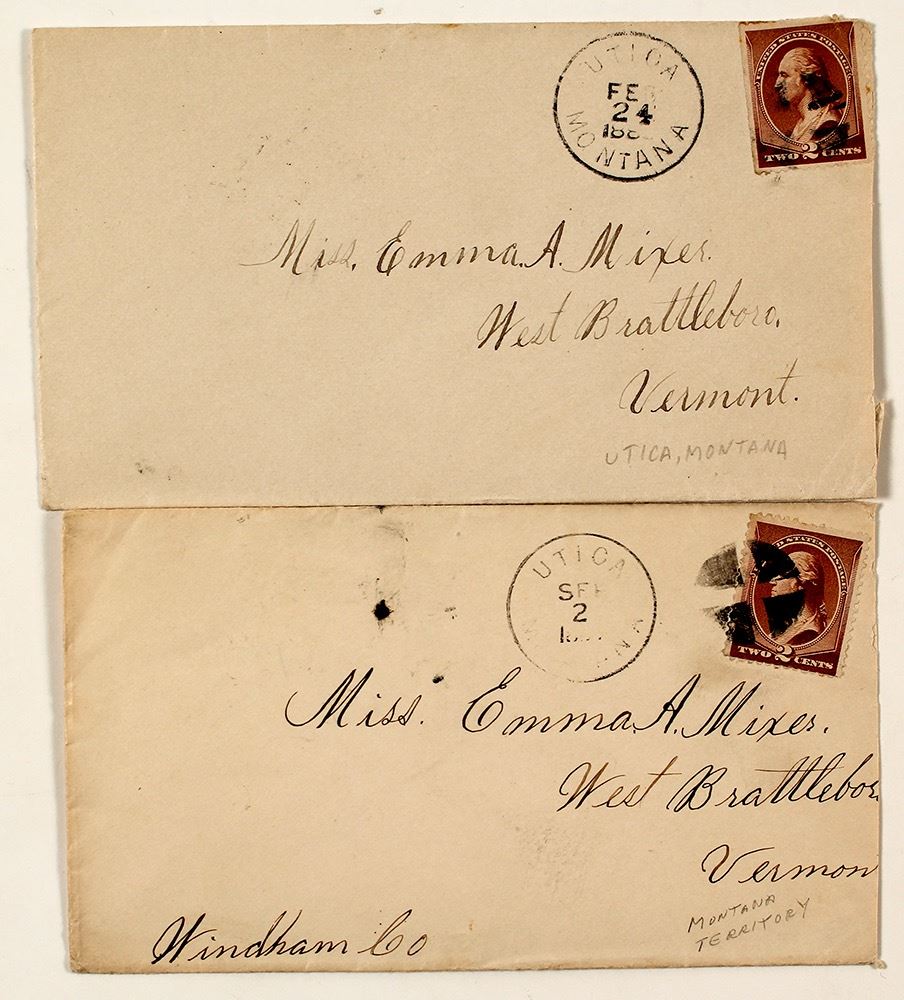 UTICA
FEB
24
188
MONTANA
UNITED STATES POSTAGE
TWO 2 CENTS
Miss. Emma. A. Mixer.
West Brattleboro,
Vermont.
UTICA, MONTANA
UTICA
SEP
2
D STATES POSTAGE
TWO 2 CENTS
Miss. Emma. A. Mixer.
West Brattlebor
Vermon
MONTANA
TERRITORY
Windham Co